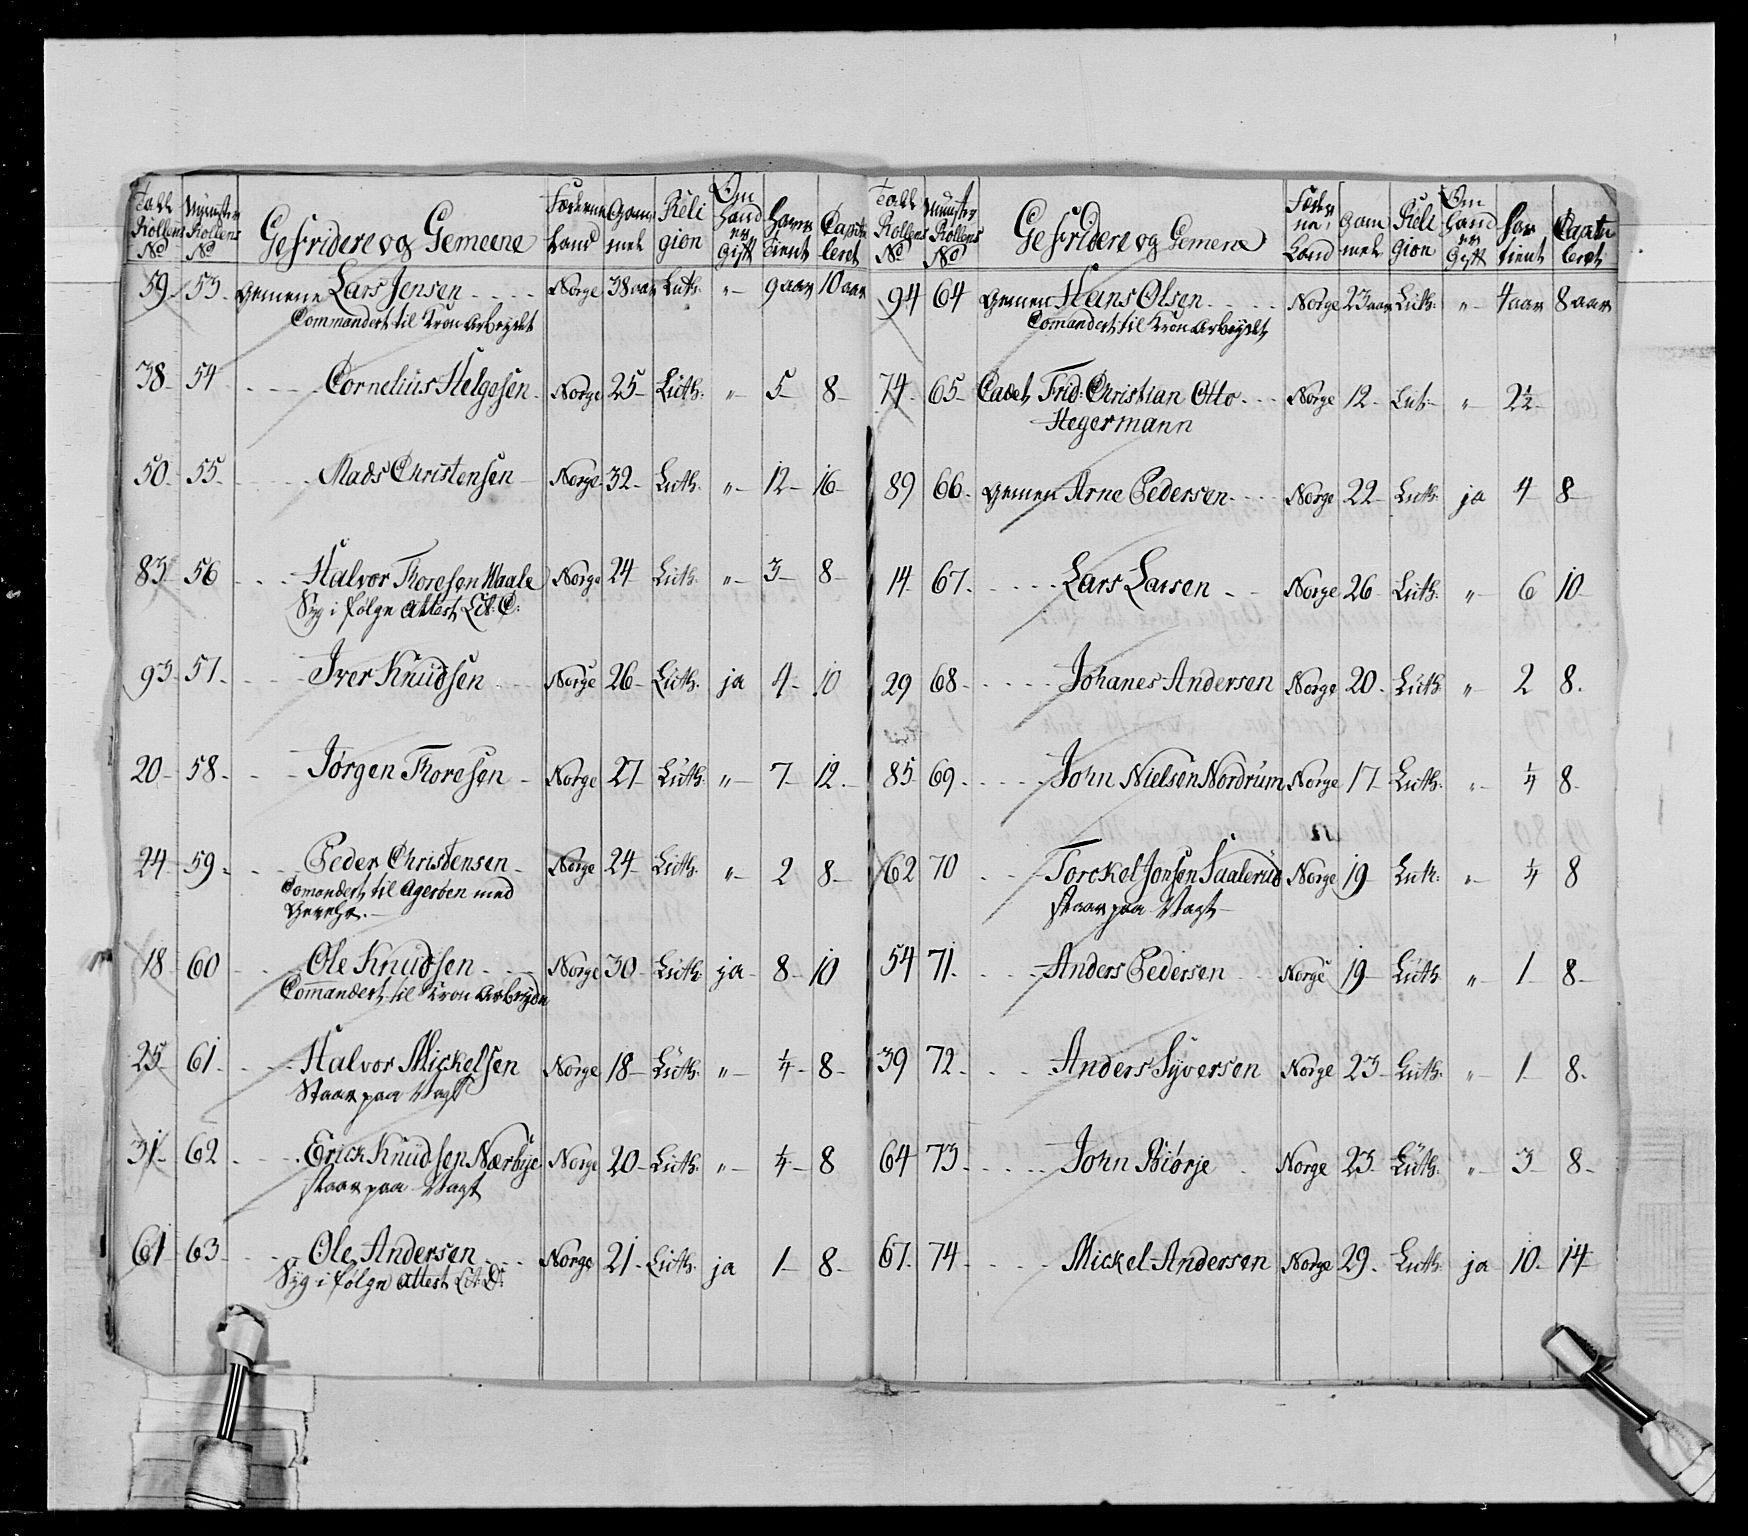 Tall Rollens No | Mynster Rollens No | Gefridere og Gemeene | Fæderne Land | Gammel | Religion | Om hand er Gift | Haver tient | Capituleret
59 | 53 | Gemene Lars Jensen | Norge | 38 aar | Luth: | „ | 9 aar | 10 aar
Commandert til Kron Arbeydet
38 | 54 | Cornelius Helgesen | Norge | 25 | Luth: | „ | 5 | 8
50 | 55 | Mads Christensen | Norge | 32 | Luth: | „ | 12 | 16
83 | 56 | Halvor Thoresen Waale | Norge | 24 | Luth: | „ | 3 | 8
Syg i følge Attest Lit: C:
93 | 57 | Iver Knudsen | Norge | 26 | Luth: | ja | 4 | 10
20 | 58 | Jørgen Thoresen | Norge | 27 | Luth: | „ | 7 | 12
24 | 59 | Peder Christensen | Norge | 24 | Luth: | „ | 2 | 8
Comandert til Ageröen med
18 | 60 | Ole Knudsen | Norge | 30 | Luth: | ja | 8 | 10
Commandert til Kron Arbeyde
25 | 61 | Halvor Mickelsen | Norge | 18 | Luth: | „ | ¼ | 8
Staar paa Vagt
31 | 62 | Erick Knudsen Nærbye | Norge | 20 | Luth: | „ | ¼ | 8
staar paa Vagt
61 | 63 | Ole Andersen | Norge | 21 | Luth: | ja | 1 | 8
Syg i følge Attest Lit: D:
Tall Rollens No | Mynster Rollens No | Gefridere og Gemene | Fæderne Land | Gammel | Religion | Om hand er Gift | Har tient | Capituleret
94 | 64 | Gemen Hans Olsen | Norge | 23 aar | Luth: | „ | 4 aar | 8 aar
Comandert til Kron Arbeydet
74 | 65 | Cadet Frid: Christian Otto | Norge | 12 | Lut: | „ | 2½
Hegermann
89 | 66 | Gemen Arne Pedersen | Norge | 22 | Luth: | ja | 4 | 8
14 | 67 | Lars Larsen | Norge | 26 | Luth: | „ | 6 | 10
29 | 68 | Johanes Andersen | Norge | 20 | Luth: | „ | 2 | 8
85 | 69 | John Nielsen Nordrum | Norge | 17 | Luth: | „ | ¼ | 8
62 | 70 | Torckel Jonsen Saalerud | Norge | 19 | Luth: | „ | ¼ | 8
staar paa Vagt
54 | 71 | Anders Pedersen | Norge | 19 | Luth | „ | 1 | 8
39 | 72 | Anders Syversen | Norge | 23 | Luth: | „ | 1 | 8
64 | 73 | John Biørje | Norge | 23 | Luth: | „ | 3 | 8
67 | 74 | Mickel Andersen | Norge | 29 | Luth: | ja | 10 | 14